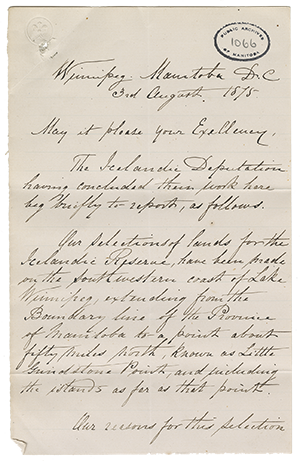 PUBLIC ARCHIVES
1066
OF MANITOBA
Winnipeg. Manitoba D.C
3rd August. 1875.
May it please your Excellency,
The Icelandic Deputation
having concluded their work here
beg briefly to report, as follows.
Our selections of lands for the
Icelandic Reserve, have been made
on the Southwestern coast of Lake
Winnipeg, extending from the
Boundary line of the Province
of Manitoba to a point about
fifty miles North, known as Little
Grindstone Point, and including
the islands as far as that point.
Our reasons for this selection